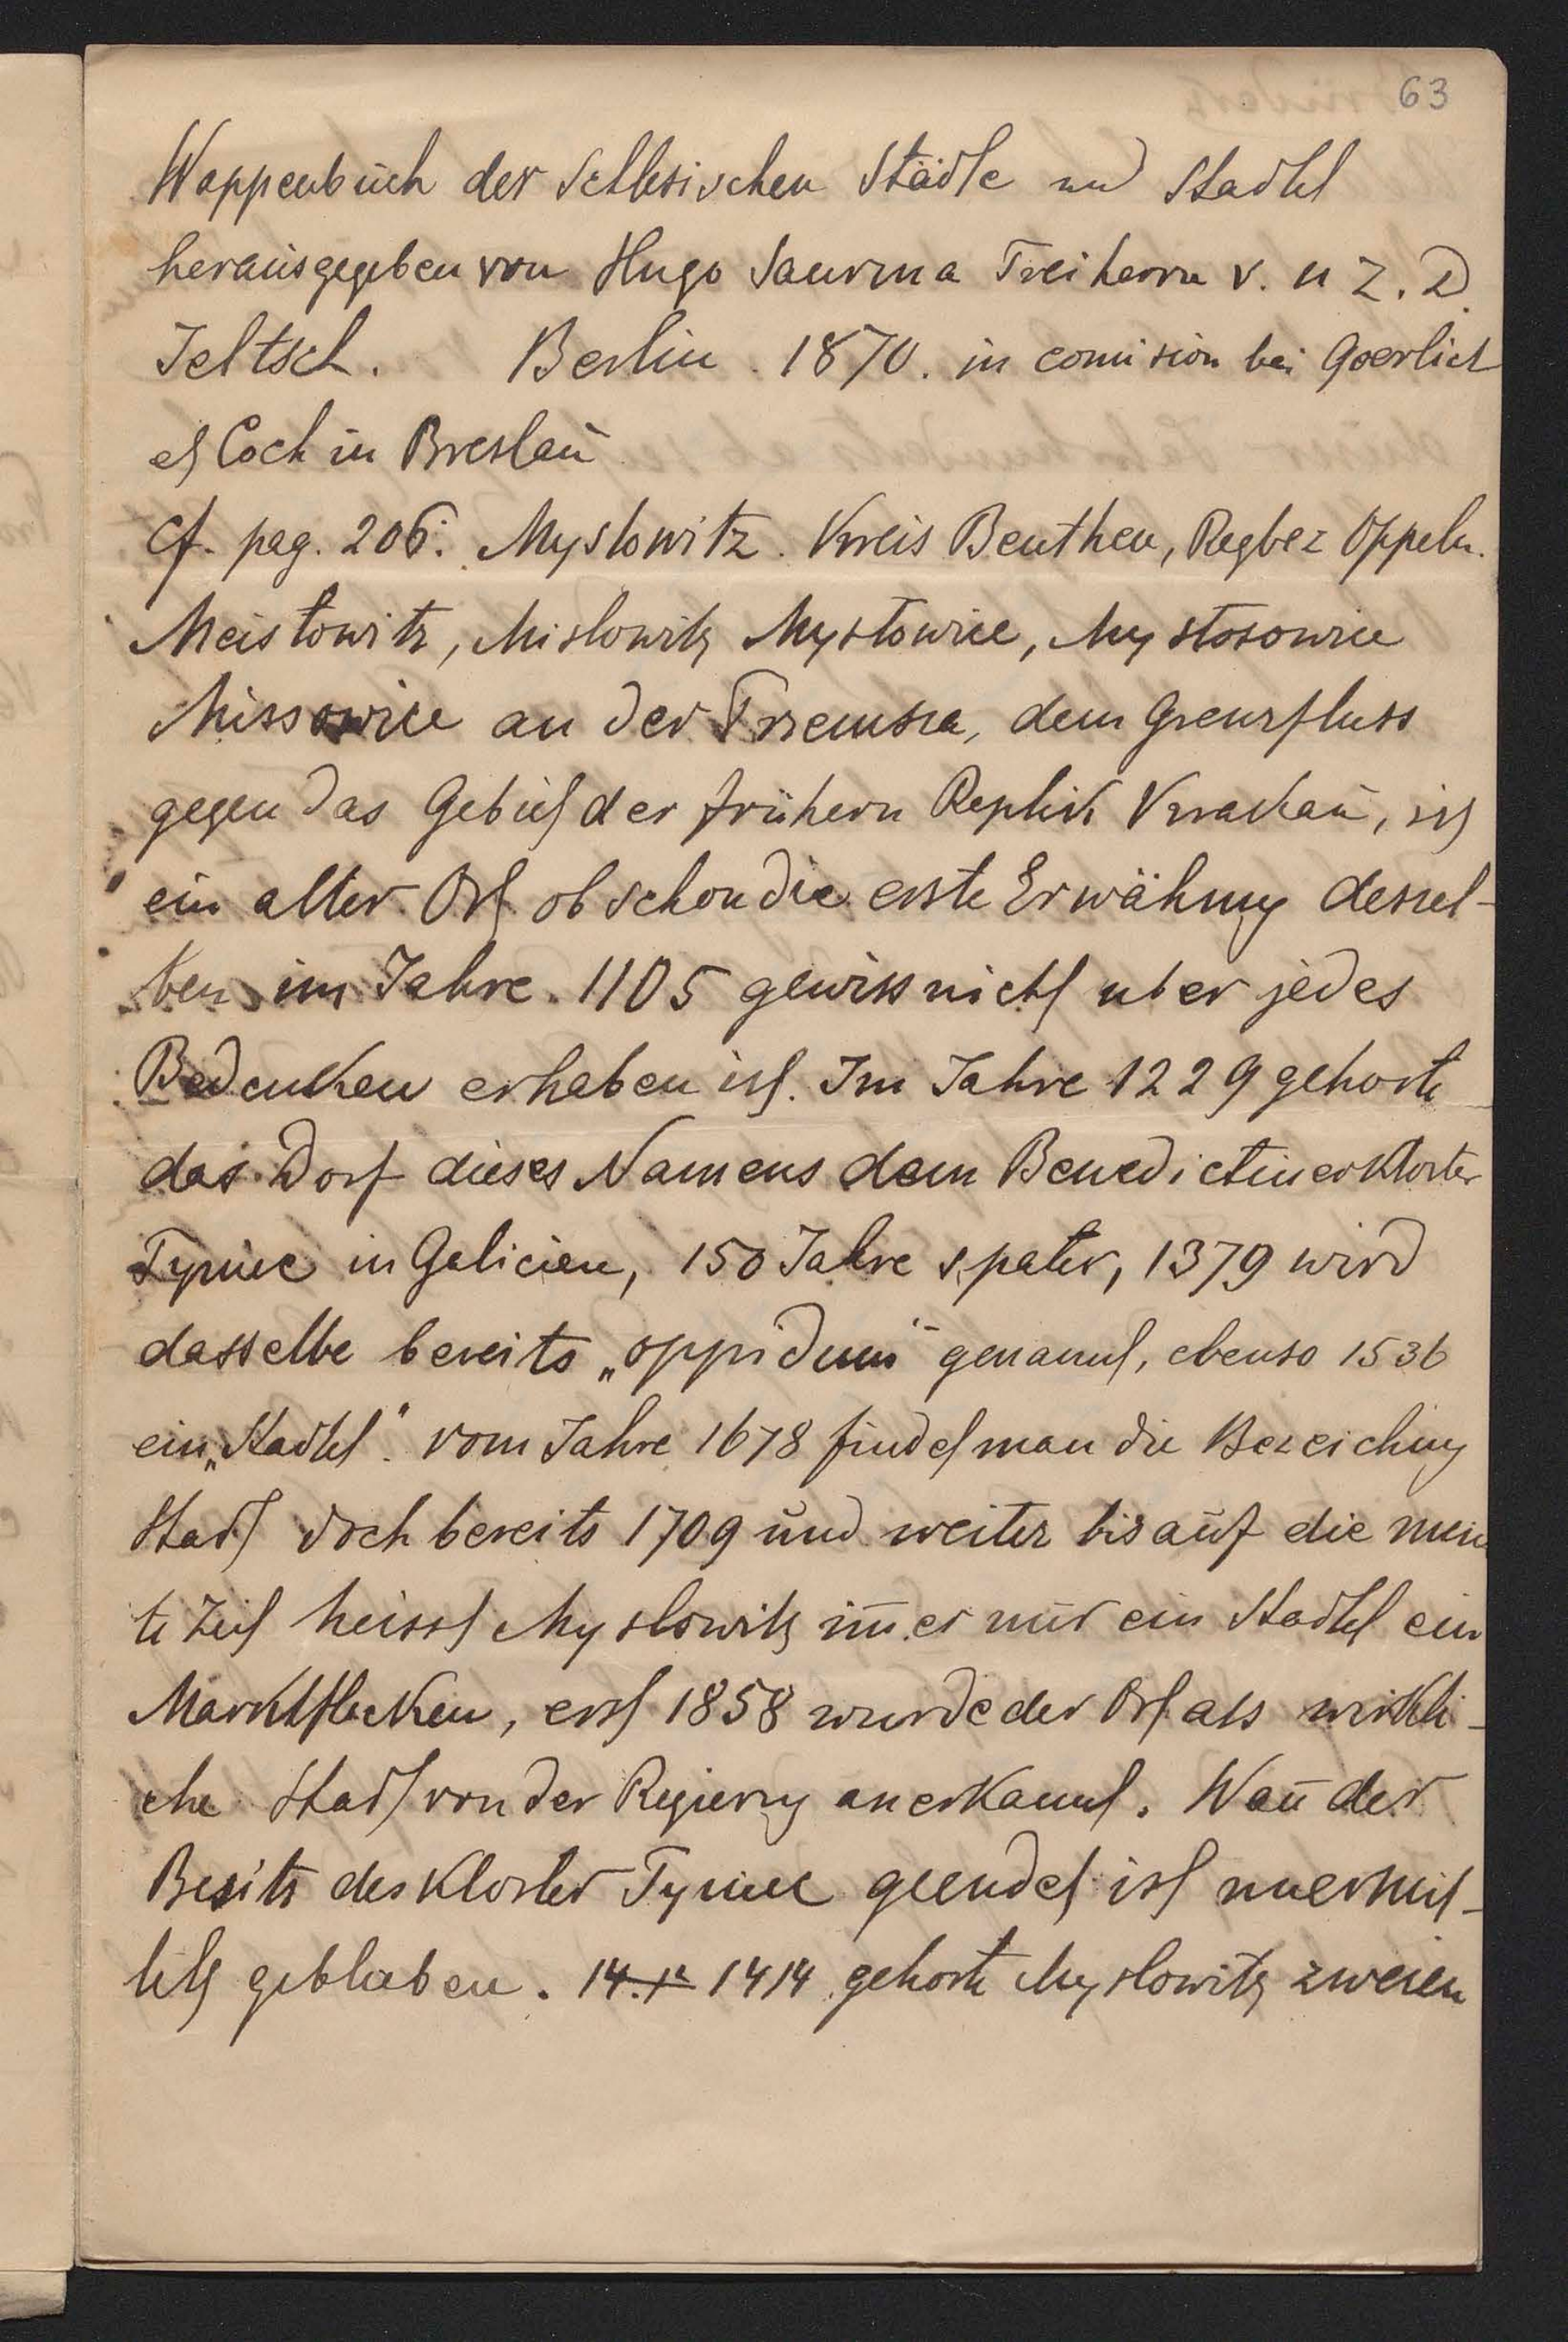 63
Wappenbuch der Schlesischen Städte und Stadtel
herausgegeben von Hugo Saurma Freiherrn v. u z. D
Jeltsch. Berlin. 1870. in comision bei Goerlich
et Coch in Breslau
Cf. pag. 206. Myslowitz. Kreis Beuthen, Regbez Oppeln.
Meistowitz, Mislowitz Mysłowice, Mysłosowice
Missowice an der Przemsza, dem Grenzfluss
gegen das Gebiet der frühern Replik Krackau, ist
ein alter Ort obschon die erste Erwähnug dessel-
ben im Jahre 1105 gewiss nicht uber jedes
Bedenken erhaben ist. Im Jahre 1229 gehorte
das Dorf dieses Namens dem Benedictinerkloster
Tyniec in Galicien, 150 Jahre spater, 1379 wird
dasselbe bereits „oppidum" genannt, ebenso 1536
ein „Stadtel". vom Jahre 1678 findet man die Bezeichug
Stadt doch bereits 1709 und weiter bis auf die
te Zeit heisst Myslowitz im̄er nur ein Stadtel ein
Marktflecken, erst 1858 wurde der Ort als wirkli-
che Stadt von der Regierug anerkannt. Wan̄ der
Besitz des Kloster Tyniec geendet ist unermit-
telt geblieben. 14.12 1414 gehorte Myslowitz zweien